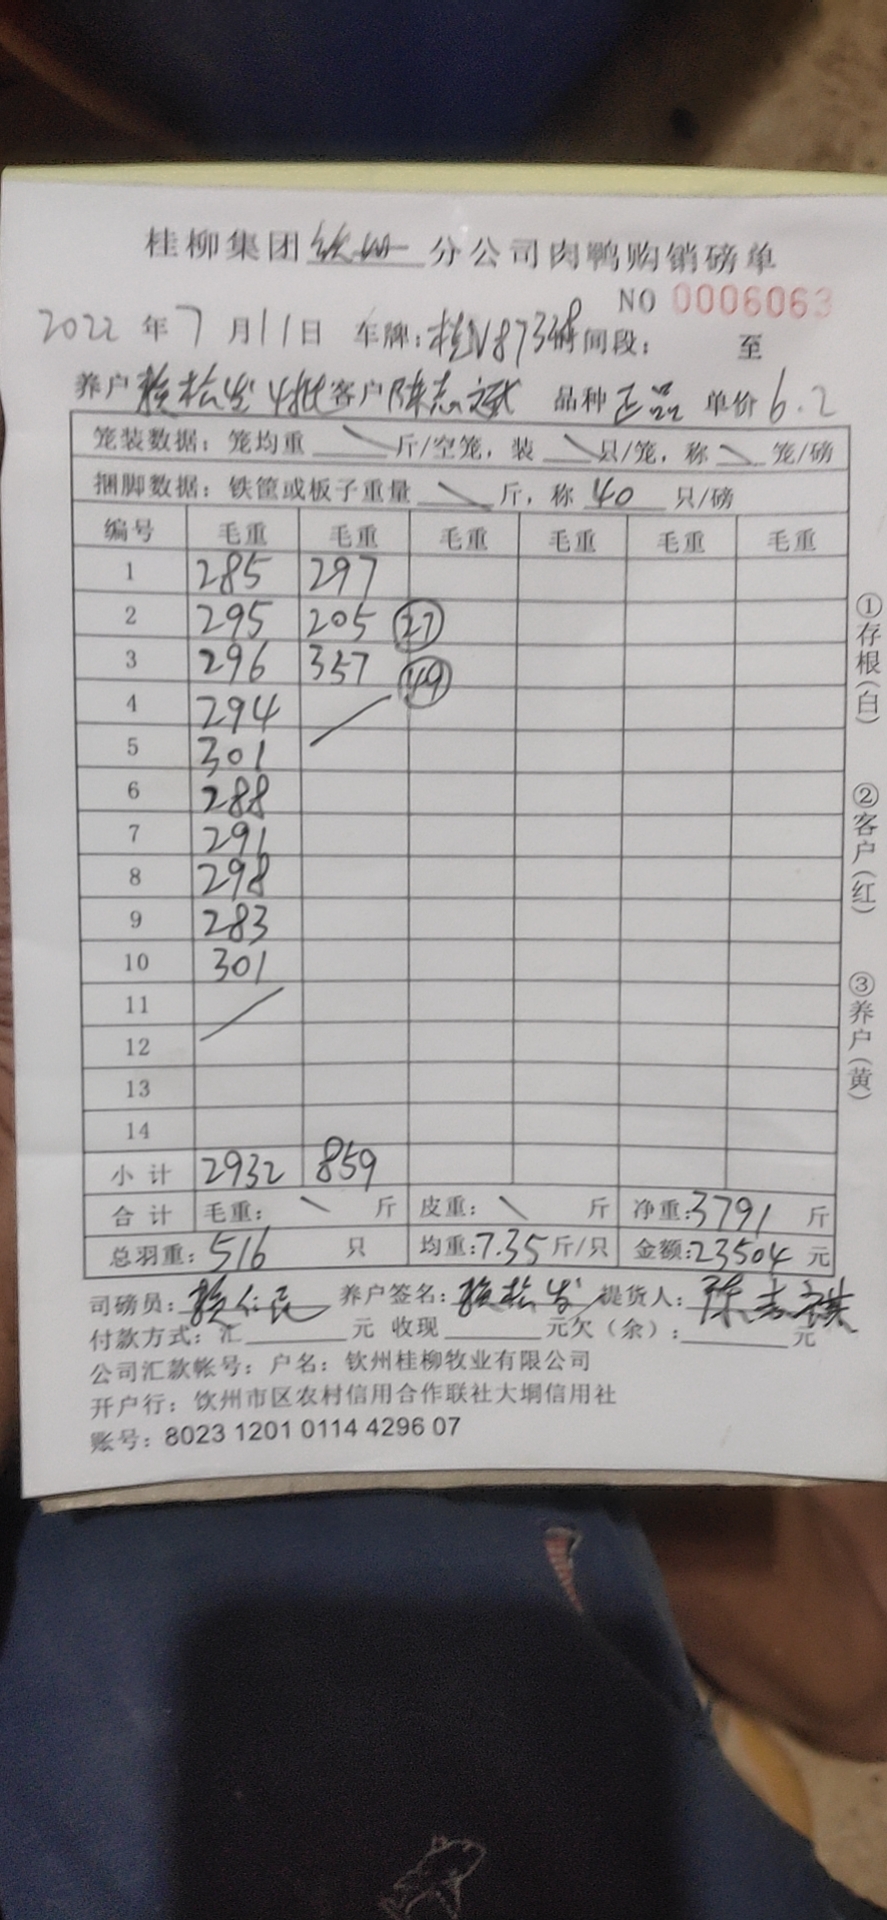 桂柳集团钦州分公司肉鸭购销磅单
NO 0006063
2022年7月11日 车牌:桂N87348时间段: 至
养户 赖松发 4批 客户 陈志斌 品种 正品 单价 6.2
笼装数据:笼均重 \ 斤/空笼,装 \ 只/笼,称 \ 笼/磅
捆脚数据:铁筐或板子重量 \ 斤,称 40 只/磅
编号 毛重 毛重 毛重 毛重 毛重 毛重
1 285 297
2 295 205 27
3 296 357 49
4 294
5 301
6 288
7 291
8 298
9 283
10 301
11
12
13
14
小计 2932 859
合计 毛重: \ 斤 皮重: \ 斤 净重:3791 斤
总羽重:516 只 均重:7.35斤/只 金额:23504元
司磅员:赖仁民 养户签名:赖松发 提货人:陈志
付款方式:汇 元 收现 元欠(余): 元
公司汇款帐号:户名:钦州桂柳牧业有限公司
开户行:钦州市区农村信用合作联社大垌信用社
账号:8023 1201 0114 4296 07
①存根(白)
②客户(红)
③养户(黄)